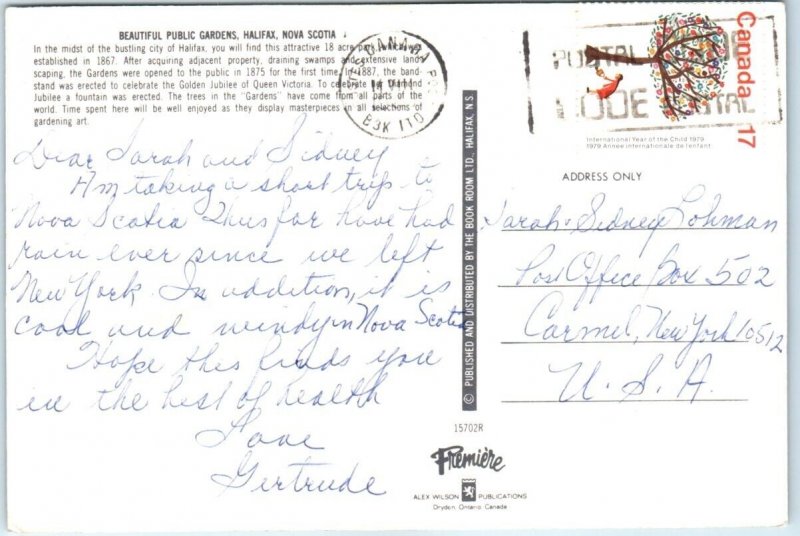 BEAUTIFUL PUBLIC GARDENS, HALIFAX, NOVA SCOTIA
In the midst of the bustling city of Halifax, you will find this attractive 18 acre park, which was
established in 1867. After acquiring adjacent property, draining swamps and extensive lands
scaping, the Gardens were opened to the public in 1875 for the first time. In 1887, the band-
stand was erected to celebrate the Golden Jubilee of Queen Victoria. To celebrate her Diamond
Jubilee a fountain was erected. The trees in the "Gardens" have come from all parts of the
world. Time spent here will be well enjoyed as they display masterpieces in all selections of
gardening art.
Dear Sarah and Sidney
Am taking a short trip to
Nova Scotia Thus far have had
rain ever since we left
New York. In addition, it is
cool and windy in Nova Scotia
Hope this finds you
in the best of health
Love
Gertrude
© PUBLISHED AND DISTRIBUTED BY THE BOOK ROOM LTD., HALIFAX, N.S.
CANADA
B3K 1T0
POSTAL CODE
CODE POSTAL
Canada 17
International Year of the Child 1979
1979 Année internationale de l'enfant
ADDRESS ONLY
Sarah & Sidney Lohman
Post Office Box 502
Carmel, New York 10512
U. S. A.
15702R
Première
ALEX WILSON PUBLICATIONS
Dryden, Ontario, Canada